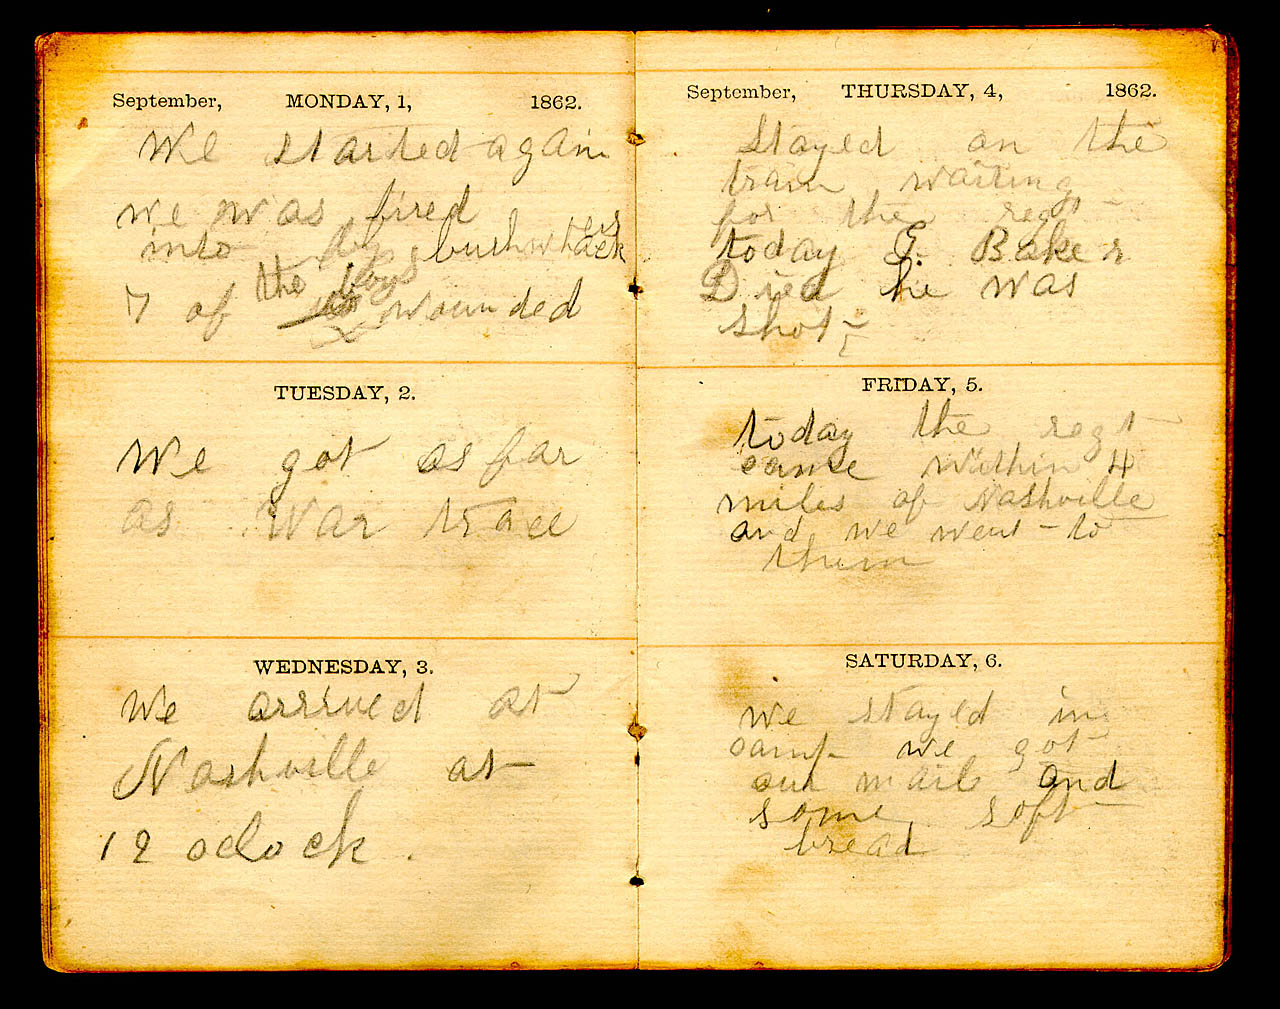 September, MONDAY, 1, 1862.
We started again
we was fired
into by bushwhackers
7 of the boys wounded
TUESDAY, 2.
We got as far
as War trace
WEDNESDAY, 3.
We arrived at
Nashville at
12 oclock.
September, THURSDAY, 4, 1862.
Stayed on the
train waiting
for the regt
today G. Baker
Died he was
shot
FRIDAY, 5.
today the regt
came within 4
miles of Nashville
and we went to
them
SATURDAY, 6.
we stayed in
camp we got
our mail and
some soft
bread